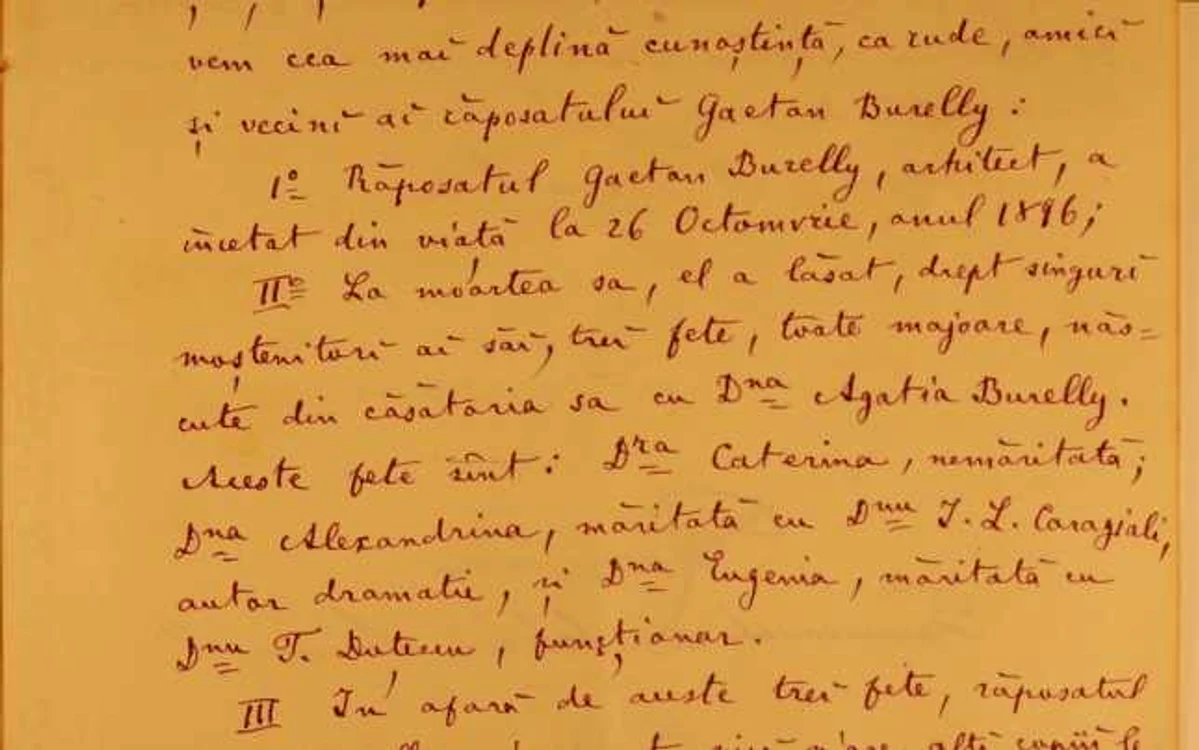 vem cea mai deplină cunoștință, ca rude, amicĭ
și vecinĭ aĭ răposatuluĭ Gaetan Burelly:
1º Răposatul Gaetan Burelly, arhitect, a
încetat din viață la 26 Octomvrie, anul 1896;
IIº La moartea sa, el a lăsat, drept singurĭ
moștenitorĭ aĭ săĭ, treĭ fete, toate majore, năs=
cute din căsătoria sa cu Dna Agatia Burelly.
Aceste fete sînt: Dra Caterina, nemăritată;
Dna Alexandrina, măritată cu Dnu I. L. Caragiali,
autor dramatic, și Dna Eugenia, măritată cu
Dnu T. Duțescu, funcționar.
III În afară de aceste treĭ fete, răposatul
alțĭ copiĭ